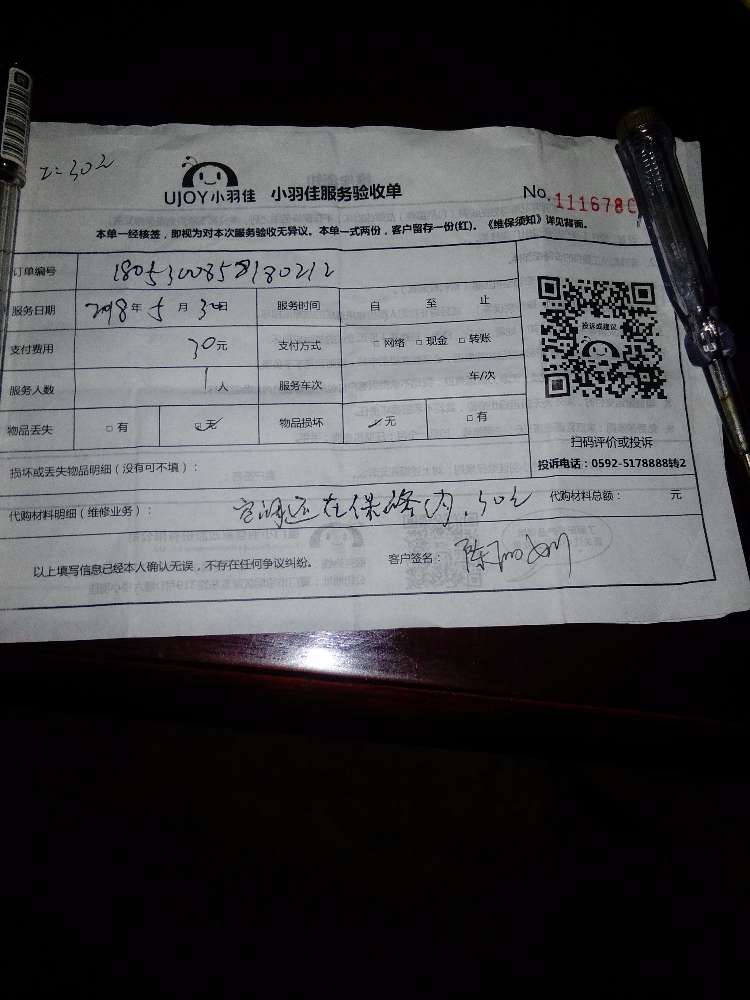 2-302
UJOY小羽佳 小羽佳服务验收单 No.111678
本单一经核签，即视为对本次服务验收无异议。本单一式两份，客户留存一份(红)。《维保须知》详见背面。
订单编号 1805300858180212
服务日期 2018年5月30日 服务时间 自 至 止
支付费用 30元 支付方式 □网络 □现金 □转账
服务人数 1人 服务车次 车/次
物品丢失 □有 ☑无 物品损坏 ☑无 □有
投诉或建议
扫码评价或投诉
投诉电话：0592-5178888转2
损坏或丢失物品明细（没有可不填）：
代购材料明细（维修业务）： 还在保修内.30元 代购材料总额： 元
以上填写信息已经本人确认无误，不存在任何争议纠纷。 客户签名： 陈